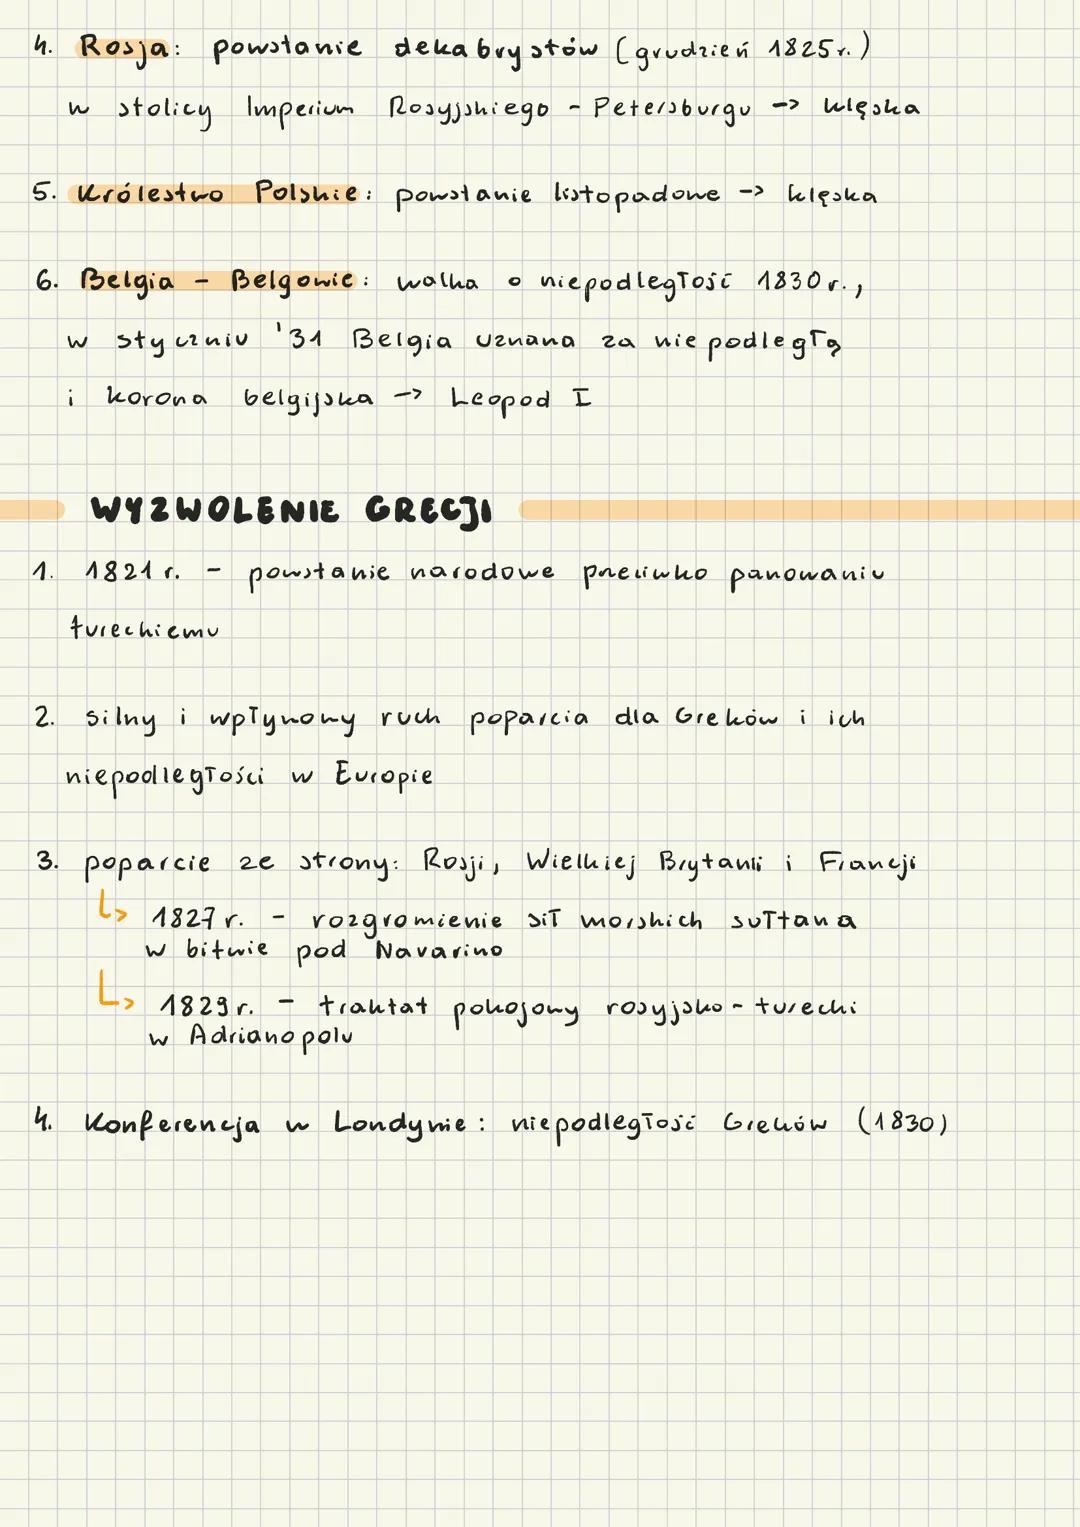 4. Rosja: powstanie dekabrystów (grudzień 1825r.)
w stolicy Imperium Rosyjskiego - Petersburgu -> klęska
5. Królestwo Polskie: powstanie listopadowe -> klęska
6. Belgia - Belgowie: walka o niepodległość 1830r.,
w styczniu '31 Belgia uznana za niepodległą
i korona belgijska -> Leopod I
WYZWOLENIE GRECJI
1. 1821 r. - powstanie narodowe przeciwko panowaniu
tureckiemu
2. silny i wpływowy ruch poparcia dla Greków i ich
niepodległości w Europie
3. poparcie ze strony: Rosji, Wielkiej Brytanii i Francji
↳ 1827 r. - rozgromienie sił morskich sułtana
w bitwie pod Navarino
↳ 1829r. - traktat pokojowy rosyjsko-turecki
w Adrianopolu
4. Konferencja w Londynie: niepodległość Greków (1830)